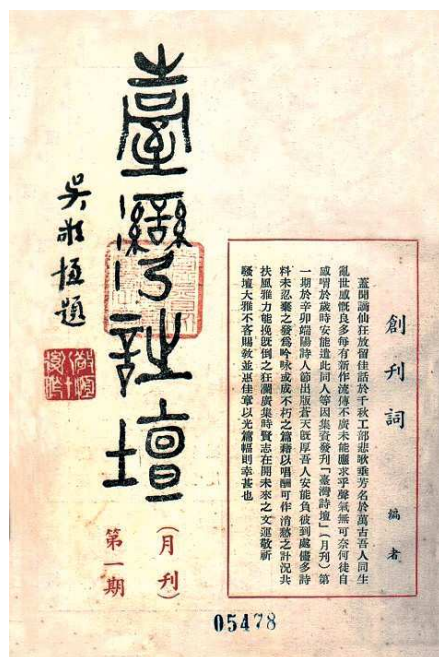 創刊詞
編者
蓋聞謫仙狂放留佳話於千秋工部悲歌垂芳名於萬古吾人同生
亂世感慨良多每有新作流傳不廣未能應求乎聲氣無可奈何徒自
感喟於歲時安能遣此同人等因集資發刊「臺灣詩壇」(月刊)第
一期於辛卯端陽詩人節出版蒼天既厚吾人安能負彼到處儘多詩
料未忍棄之發爲吟咏或成不朽之篇藉以唱酬可作消愁之計況共
扶風雅力能挽既倒之狂瀾廣集時賢志在開未來之文運敬祈
騷壇大雅不吝賜教並惠佳章以光篇幅則幸甚也
臺灣詩壇
(月刊)
第一期
吳敬恆題
05478